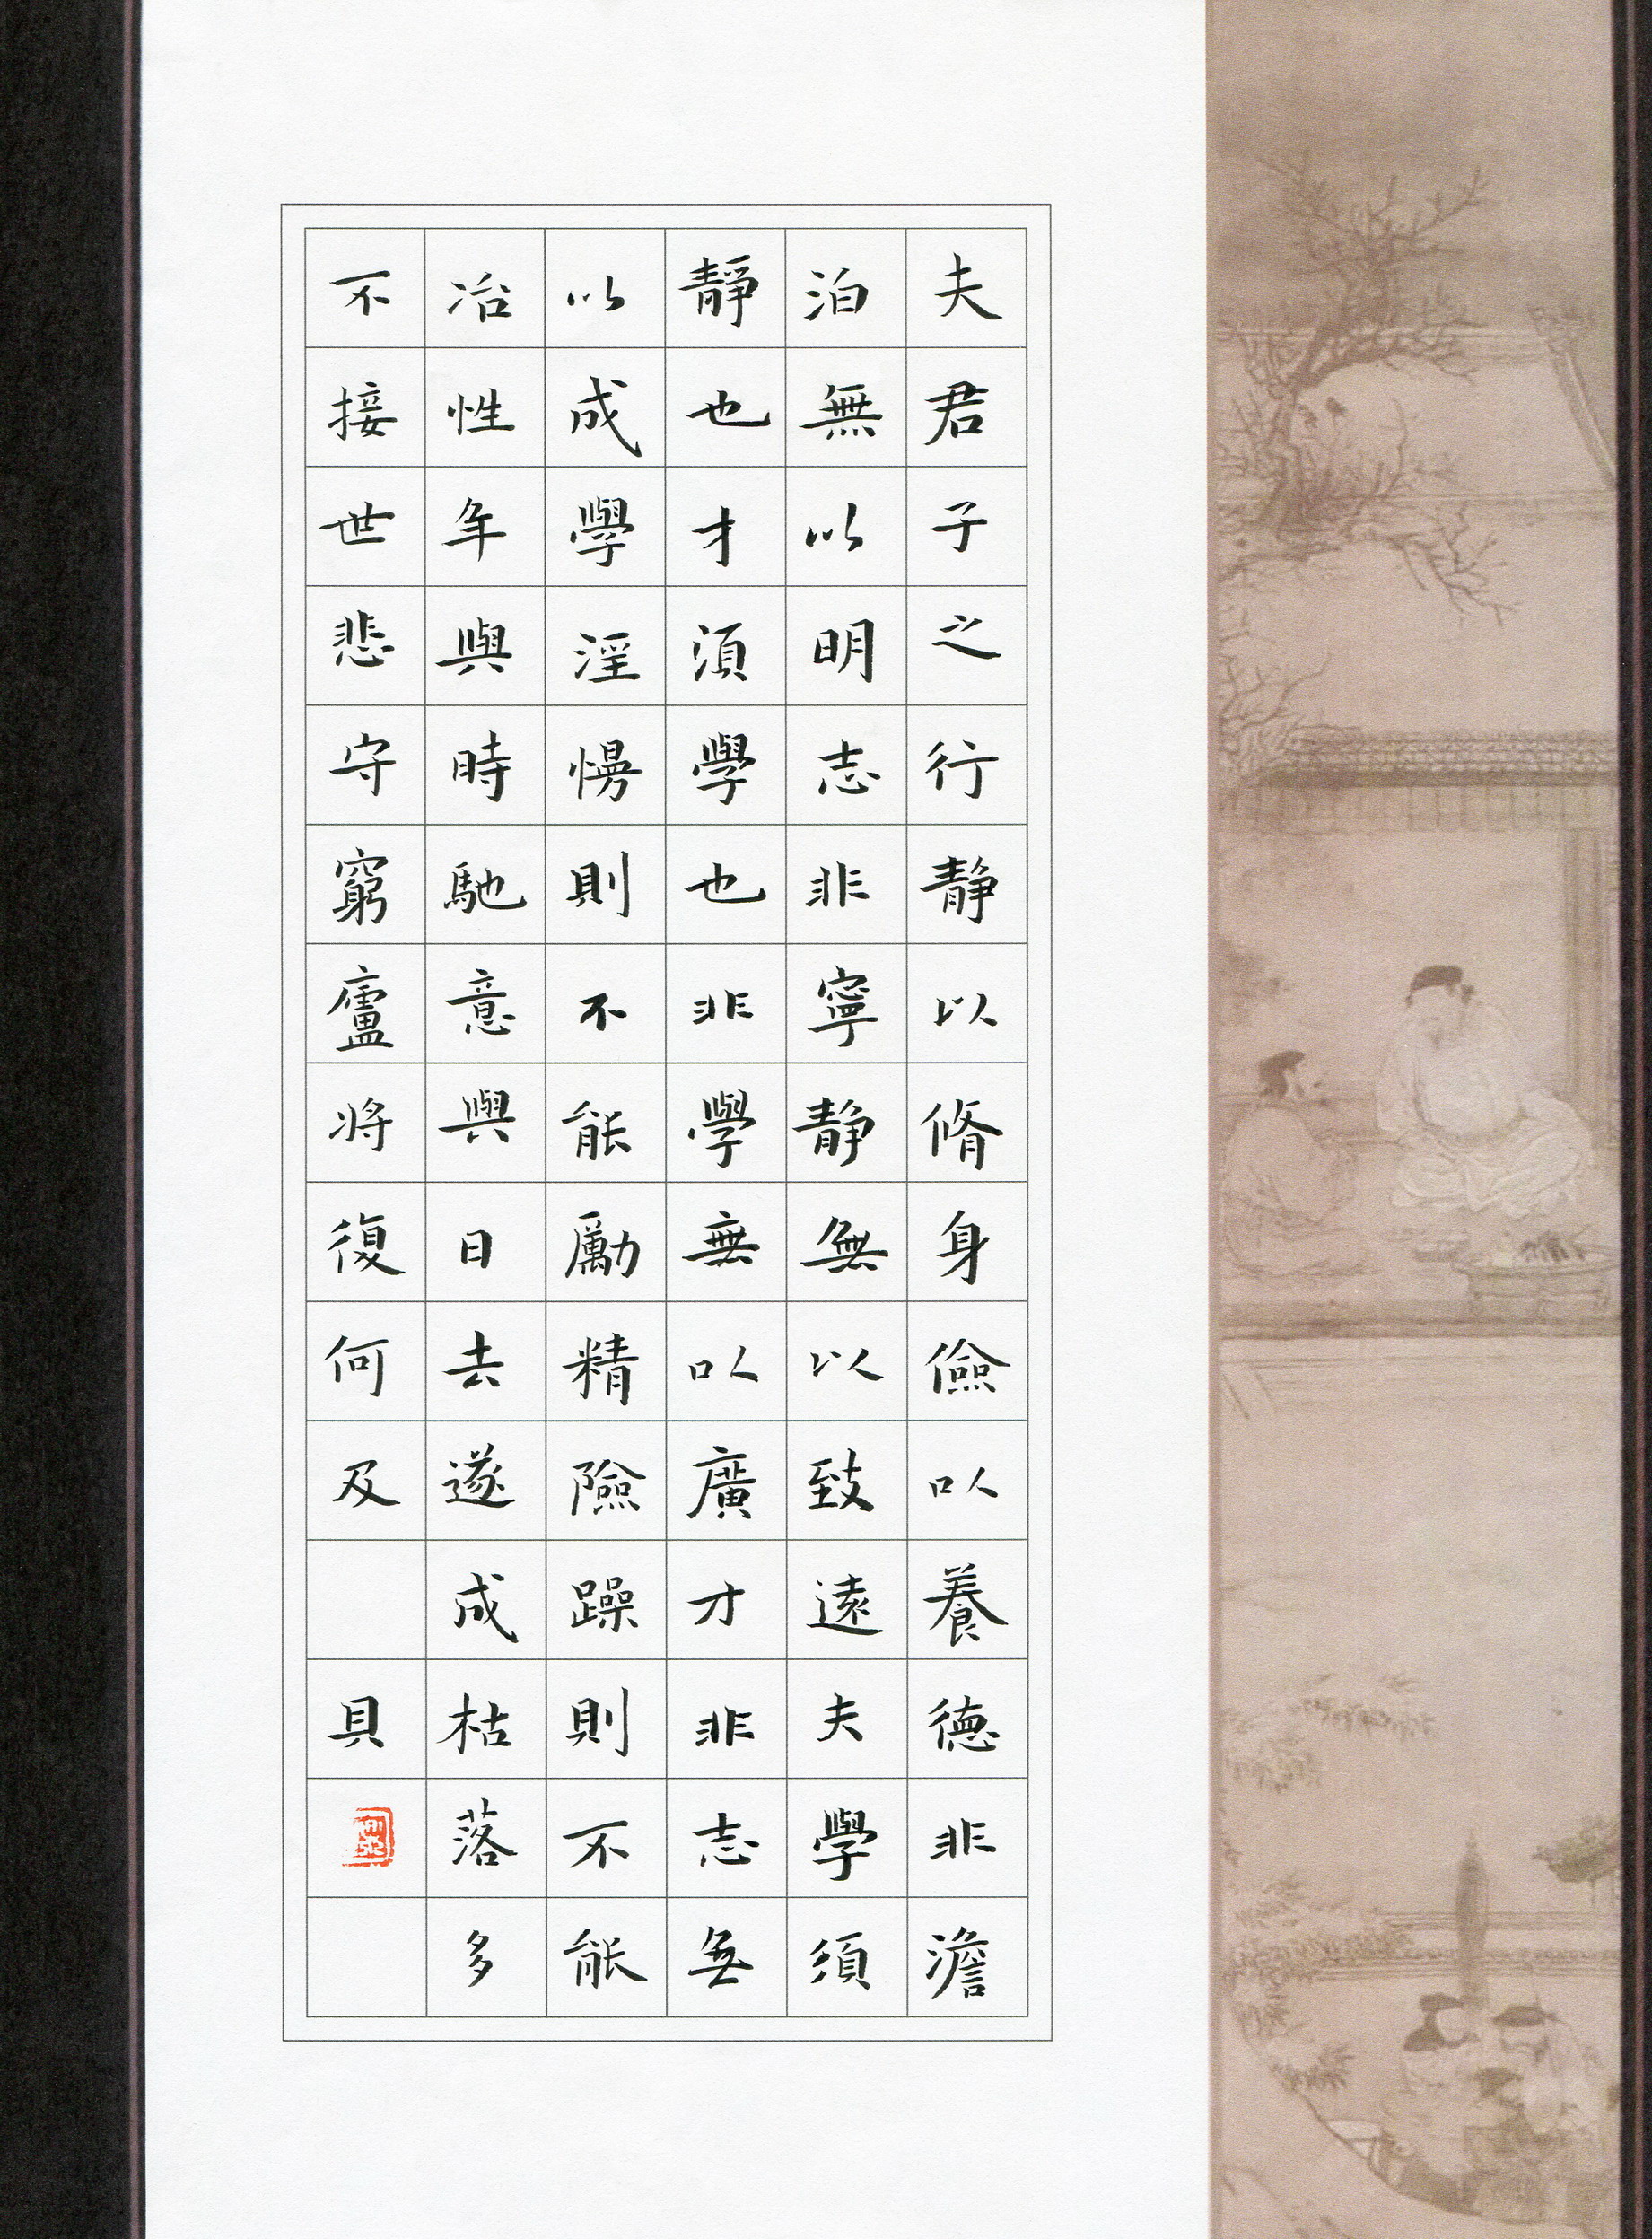 夫君子之行静以脩身儉以養德非澹
泊無以明志非寧静無以致遠夫學須
靜也才須學也非學無以廣才非志無
以成學淫慢則不能勵精險躁則不能
冶性年與時馳意與日去遂成枯落多
不接世悲守窮廬將復何及
具